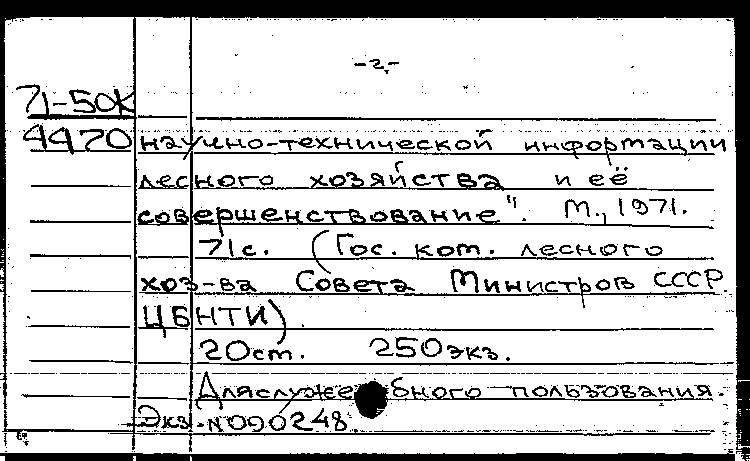 -2-
71-50К
4470 научно-технической информации
лесного хозяйства и её
совершенствование". М., 1971.
71с. (Гос. ком. лесного
хоз-ва Совета Министров СССР.
ЦБНТИ)
20см. 250экз.
Для служебного пользования.
Экз. №000248.